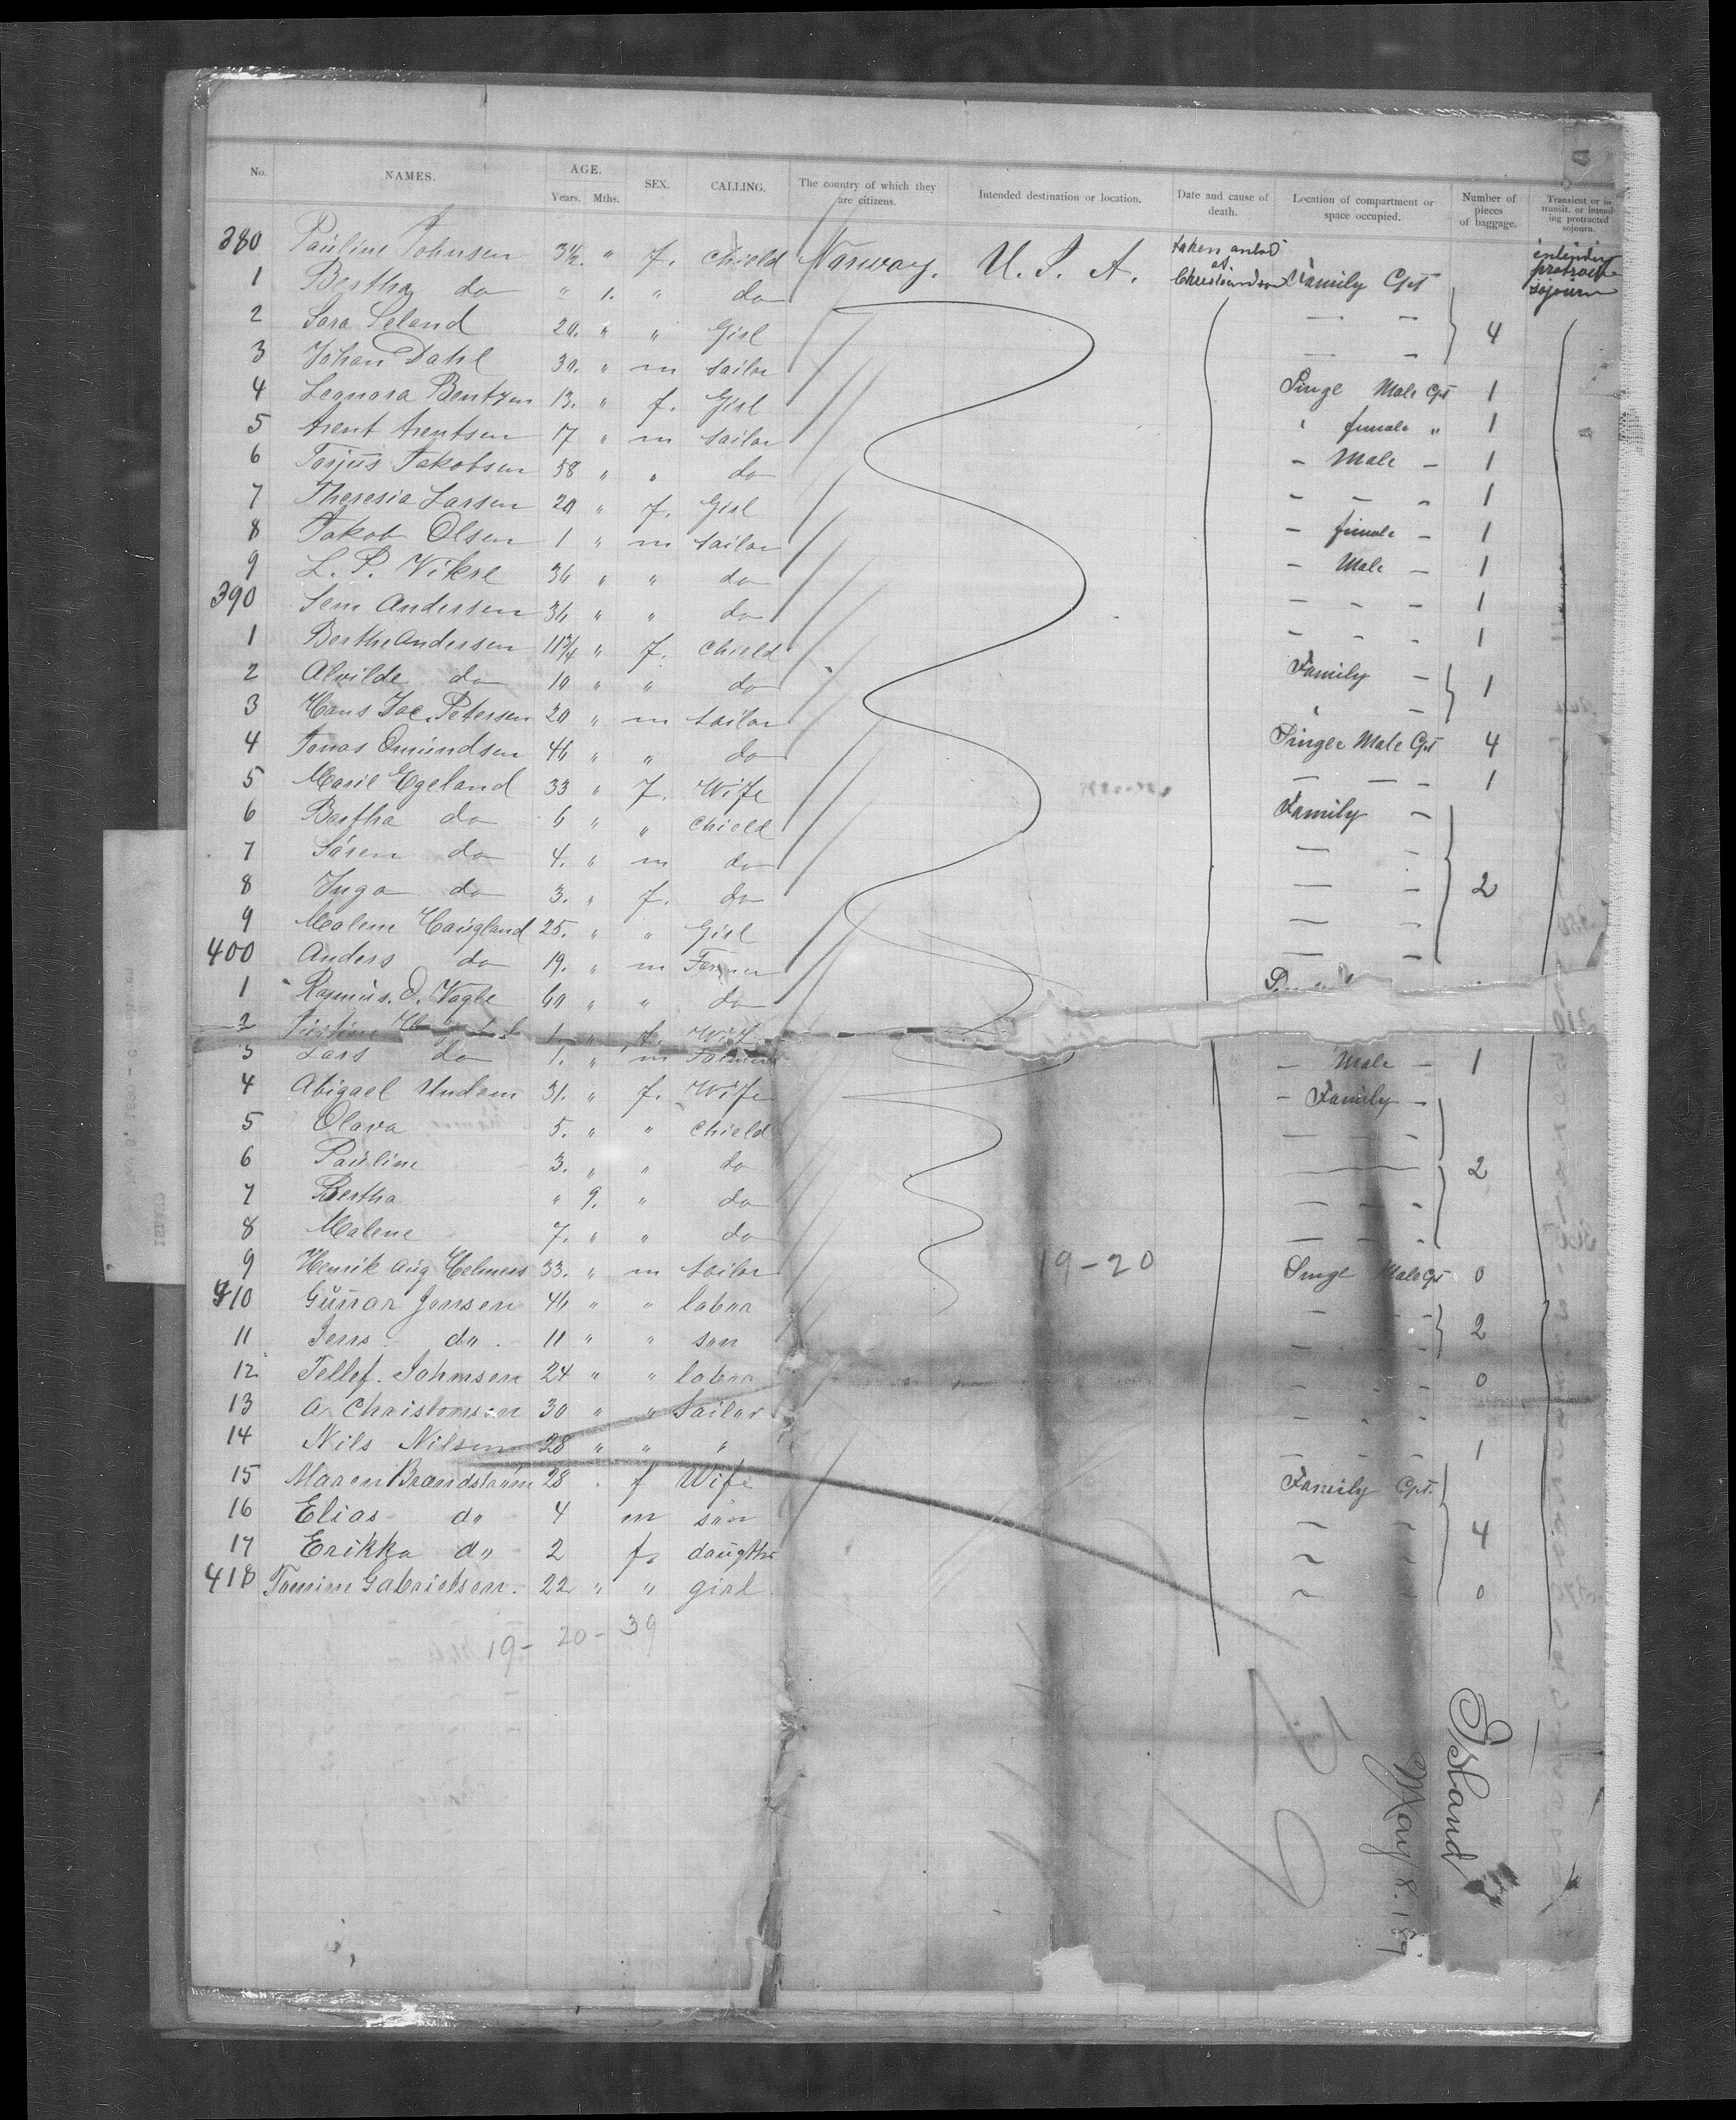 No. NAMES. AGE. Years. Mths. SEX. CALLING. The country of which they are citizens. Intended destination or location. Date and cause of death. Location of compartment or space occupied. Number of pieces of baggage. Transient or in transit, or intending protracted sojourn.
380 Pauline Johnsen 3½. " f. Chield Norway. U. S. A. taken onbod at Christiandsand Family Cpt intending protract sojourn
1 Bertha do " 1. " do — –
2 Sara Seland 20. " " Girl — – 4
3 Johan Dahl 30. " m sailor Singe Male Cpt 1
4 Leonora Bentzen 13. " f. Girl " female " 1
5 Arent Arentsen 17 " m sailor – Male – 1
6 Torjus Jakobsen 58 " " do – – – 1
7 Theresia Larsen 20 " f. Girl – female – 1
8 Jakob Olsen 1 " m sailor – Male – 1
9 L. P. Vikse 36 " " do – – – 1
390 Sem Andersen 36 " " do – – – 1
1 Berthe Andersen 11¾ " f. Chield Family –
2 Alvilde do 10 " " do " – 1
3 Hans Jac. Petersen 20 " m sailor Singel Male Cpt 4
4 Jonas Omundsen 46 " " do — — – 1
5 Marie Egeland 33 " f. Wife Family –
6 Bertha do 6 " " Chield — –
7 Sören do 4. " m do — – 2
8 Inga do 3. " f. do — –
9 Malene Haugland 25. " " Girl — –
400 Anders do 19. " m Farmer
1 Rasmus. O. Vagle 60 " " do
2 1. " f. Wife
3 Lars do 1. " m Farmer – Male – 1
4 Abigael Undem 31. " f. Wife – Family –
5 Olava 5. " " Chield — –
6 Pauline 3. " " do — 2
7 Bertha " 9. " do — — –
8 Malene 7. " " do — — –
9 Henrik Aug Helmers 33. " m sailor 19-20 Singe Male Cpt 0
410 Gunar Jensen 46 " " labor – – –
11 Jens do. 11 " " son – – 2
12 Tellef. Johnsen 24 " " labor – – – 0
13 A. Christomsen 30 " " Sailor – – –
14 Nils Nilsen 28 " " " – – – 1
15 Maren Brandstrøm 28 " f Wife Family Cpt.
16 Elias do 4 m son ~ ~
17 Erikka do 2 f. daugther ~ 4
418 Tomine Gabrielsen. 22 " " girl ~ 0
19- 20- 39
Island
May 8. 187